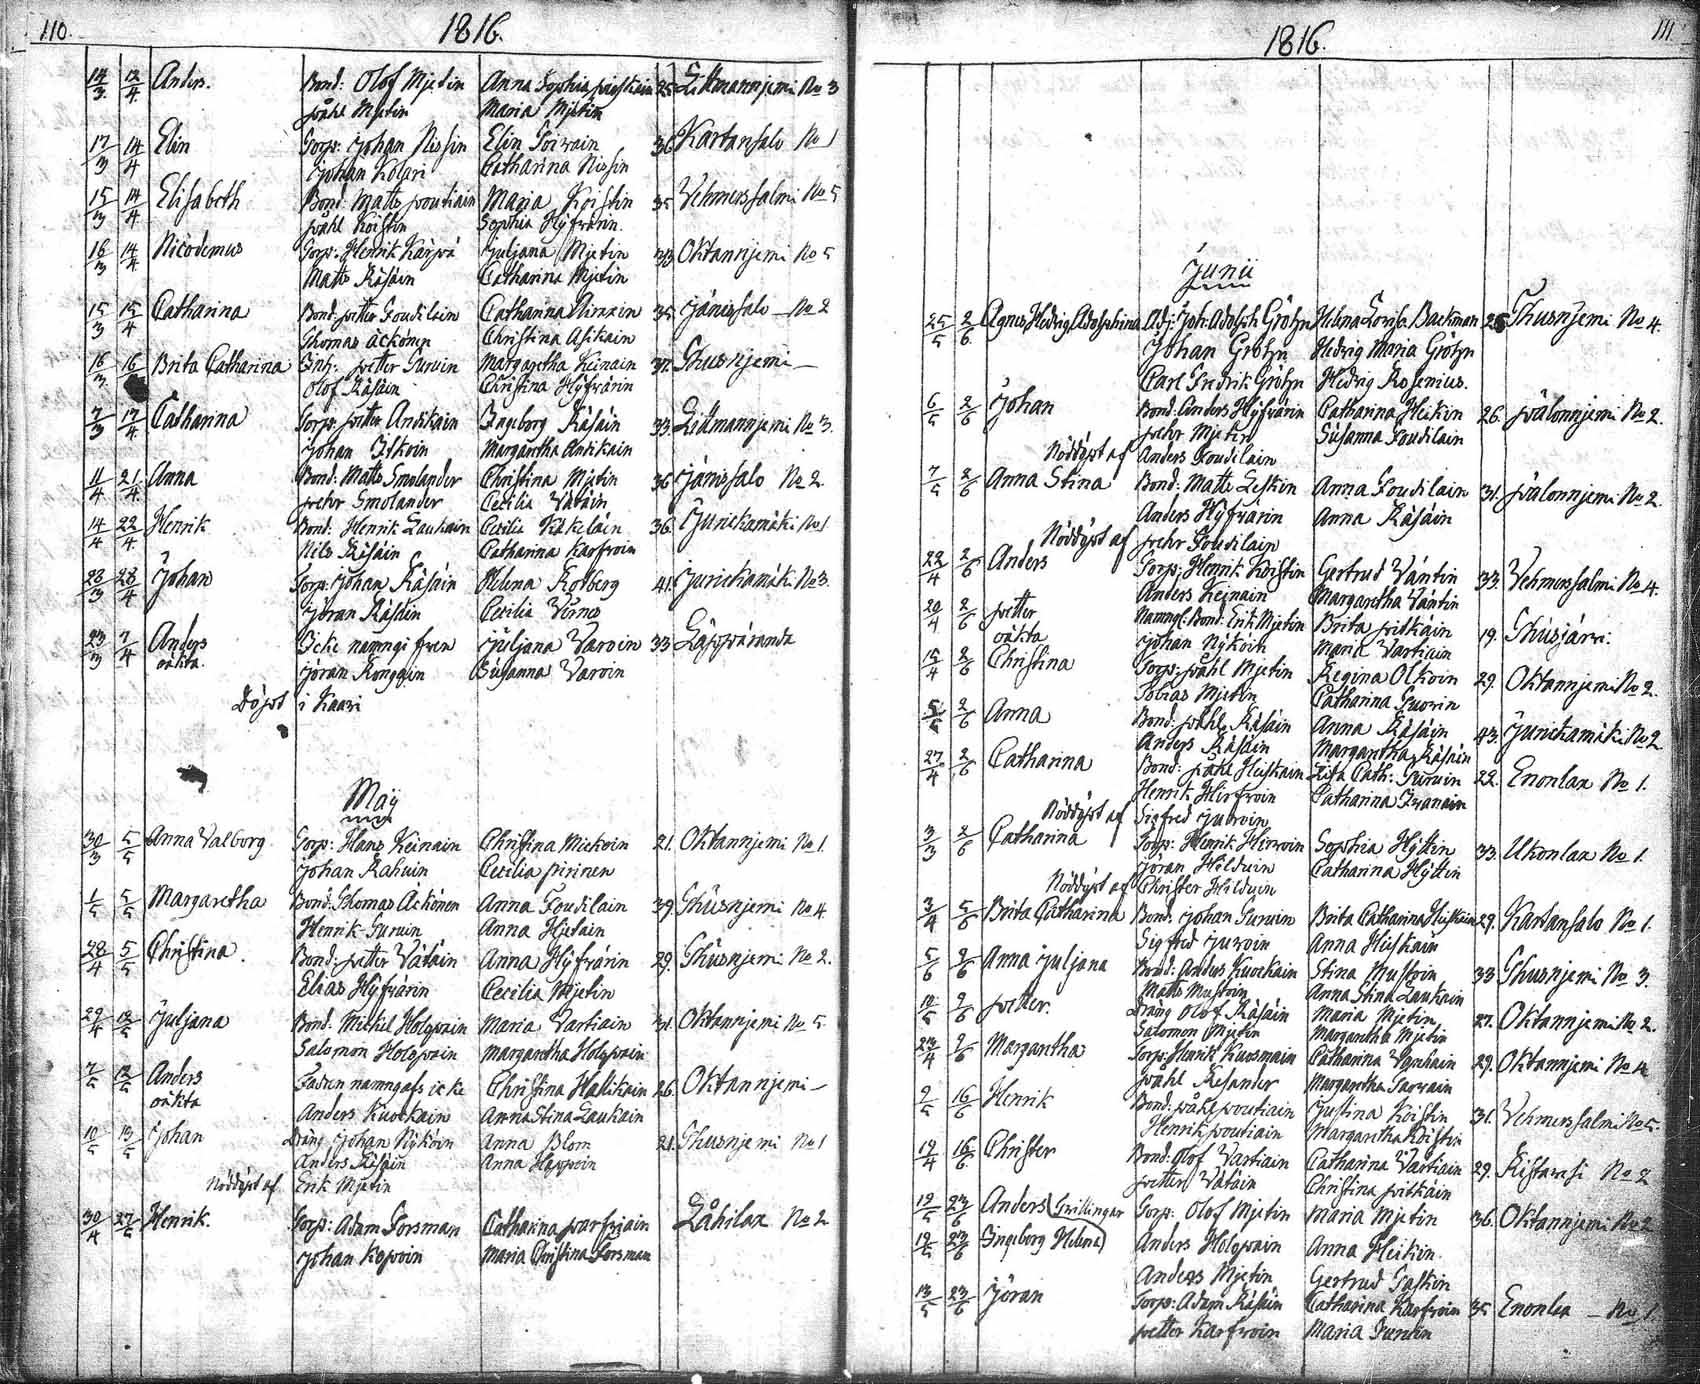 110.
1816.
14/3 12/4 Anders. Bond: Olof Mjetin Anna Sophia 25 Litmannjemi No 3
Påhl Mjetin Maria Mjetin
17/3 14/4 Elin Torp: Johan Nissin Elin Toivain 36 Kartansalo No 1
Johan Kolari Catharina Nissin
15/3 14/4 Elisabeth Bond: Matts Poutiain Maria Koistin 35 Vehmersalmi No 5
Påhl Koistin Sophia Hyfvärin.
16/3 14/4 Nicodemus Torp: Henrik Kärpä Juljana Mjetin 33 Oktannjemi No 5
Matts Räsäin Catharina Mjetin
15/3 15/4 Catharina Bond: Petter Toudilain Catharina 35 Jänissalo No 2
Thomas Äckönen Christina Asikain
16/3 16 Brita Catharina Petter Turuin Margaretha Keinain 37. Thusnjemi
Olof Räsäin Christina Hyfvärin
7/3 17/4 Catharina Torp: Petter Antikain Ingeborg Räsäin 33. Litmannjemi No 3.
Johan Itkoin Margaretha Antikain
11/4 21/4 Anna Bond: Matts Smolander Christina Mjetin 36 Jänissalo No 2.
Petter Smolander Cecilia Vätäin
14/4 22/4 Henrik Bond: Henrik Laukain Cecilia Käkeläin 36. Jurickamäki No 1
Nils Räsäin Catharina Karfvoin
23/3 28/4 Johan Torp: Johan Räsäin Helena Rotberg 41. Jurickamäki No 3.
Jöran Räsäin Cecilia
23/3 7/4 Anders Icke namngifven Juljana Varoin 33
oäkta. Jöran Susanna Varoin
Döpt i Kaavi
Maij
30/3 5/5 Anna Valborg Torp: Hans Keinain Christina Mickoin 21. Oktannjemi No 1.
Johan Rahuin Cecilia Pirinen
1/5 5/5 Margaretha Bond: Thomas Äckönen Anna Toudilain 39. Thusnjemi No 4
Henrik Turuin Anna
28/4 5/5 Christina. Bond: Petter Vätäin Anna Hyfvärin 29. Thusnjemi No 2.
Elias Hyfvärin Cecilia Mjetin
29/4 12/5 Juljana Bond: Mickel Holopain Maria Vartiain 31. Oktannjemi No 5
Salomon Holopain Margaretha Holopain
7/5 12/5 Anders Fadren namngafs icke Christina Hallikain 26. Oktannjemi
oäkta Anders Kuockain Anna Stina Laukain
10/5 13/5 Johan Dräng Johan Nykoin Anna Blom 21. Thusnjemi No 1
Anders Räsäin Anna Happoin
Nöddöpt af Erik Mjetin
30/4 27/5 Henrik. Torp: Adam Forsman Catharina Parfviain Låhilax No 2
Johan Kopoin Maria Christina Forsman
111
1816.
Junii
25/5 2/6. Agnes Hedvig Adolphina Adj: Joh: Adolph Gröhn Helena Lovisa Backman 25 Thusnjemi No 4.
Johan Gröhn Hedvig Maria Gröhn
Carl Fredrik Gröhn Hedvig Rosenius.
6/5 2/6 Johan Bond: Anders Hyfvärin Catharina Heikin 26. Pälonnjemi No 2.
Petter Mjetin Susanna Toudilain
Nöddöpt af Anders Toudilain
7/5 2/6 Anna Stina Bond: Matts Leskin Anna Toudilain 31. Pälonnjemi No 2.
Anders Hyfvärin Anna Räsäin
Nöddöpt af Petter Toudilain
22/4 2/6 Anders Torp: Henrik Koistin Gertrud Väntin 33. Vehmersalmi No 4.
Anders Keinain Margaretha Väntin
20/4 2/6 Petter Namngl. Bond: Erik Mjetin Brita Pitkäin 19. Thusjärvi.
oäkta Johan Nykoin Maria Vartiain
15/4 2/6 Christina Torp: Påhl Mjetin Regina Olkoin 29. Oktannjemi No 2.
Tobias Mjetin Catharina
2/6 Anna Bond: Påhl Räsäin Anna Räsäin 43. Jurickamäki No 2
Anders Räsäin Margaretha Räsäin
27/4 2/6 Catharina Bond: Påhl Huskain Lisa Cath: Turuin 22. Enonlax No 1.
Henrik Hirfvoin Catharina Ivanain
Nöddöpt af Sigfred Juvoin
3/3 2/6 Catharina Torp: Henrik Hirvoin Sophia Hyttin 33. Ukonlax No 1.
Jöran Hilduin Catharina Hyttin
Nöddöpt af Christer Hilduin
3/4 5/6 Brita Catharina Bond: Johan Turuin Brita Catharina Huskain 29. Kartansalo No 1.
Sigfred Juvoin Anna Huskain
5/6 9/6 Anna Juljana Bond: Anders Kuockain Stina Mustoin 33 Thusnjemi No 3.
Matts Mustoin Anna Stina Laukain
9/6 Petter. Dräng Olof Räsäin Maria Mjetin 27. Oktannjemi No 2.
Salomon Mjetin Margaretha Mjetin
23/4 9/6 Margaretha Torp: Henrik Kuosmain Catharina 29. Oktannjemi No 4
Påhl Resander Margaretha
9/5 16/6 Henrik Bond: Påhl Poutiain Justina Koistin 31. Vehmersalmi No 5.
Henrik Poutiain Margaretha Koistin
19/4 16/6. Christer Bond: Olof Vartiain Catharina Vartiain 29. Ristavesi No 2
Petter Vätäin Christina Pitkäin
19/5 23/6 Anders Tvillingar Torp: Olof Mjetin Maria Mjetin 36. Oktannjemi No 2
19/5 23/6 Ingeborg Helena Anders Holopain Anna Heikin.
Anders Mjetin Gertrud Taskin
13/5 23/6 Jöran Torp: Adam Räsäin Catharina Karfvoin 35. Enonlax No 1.
Petter Karfvoin Maria